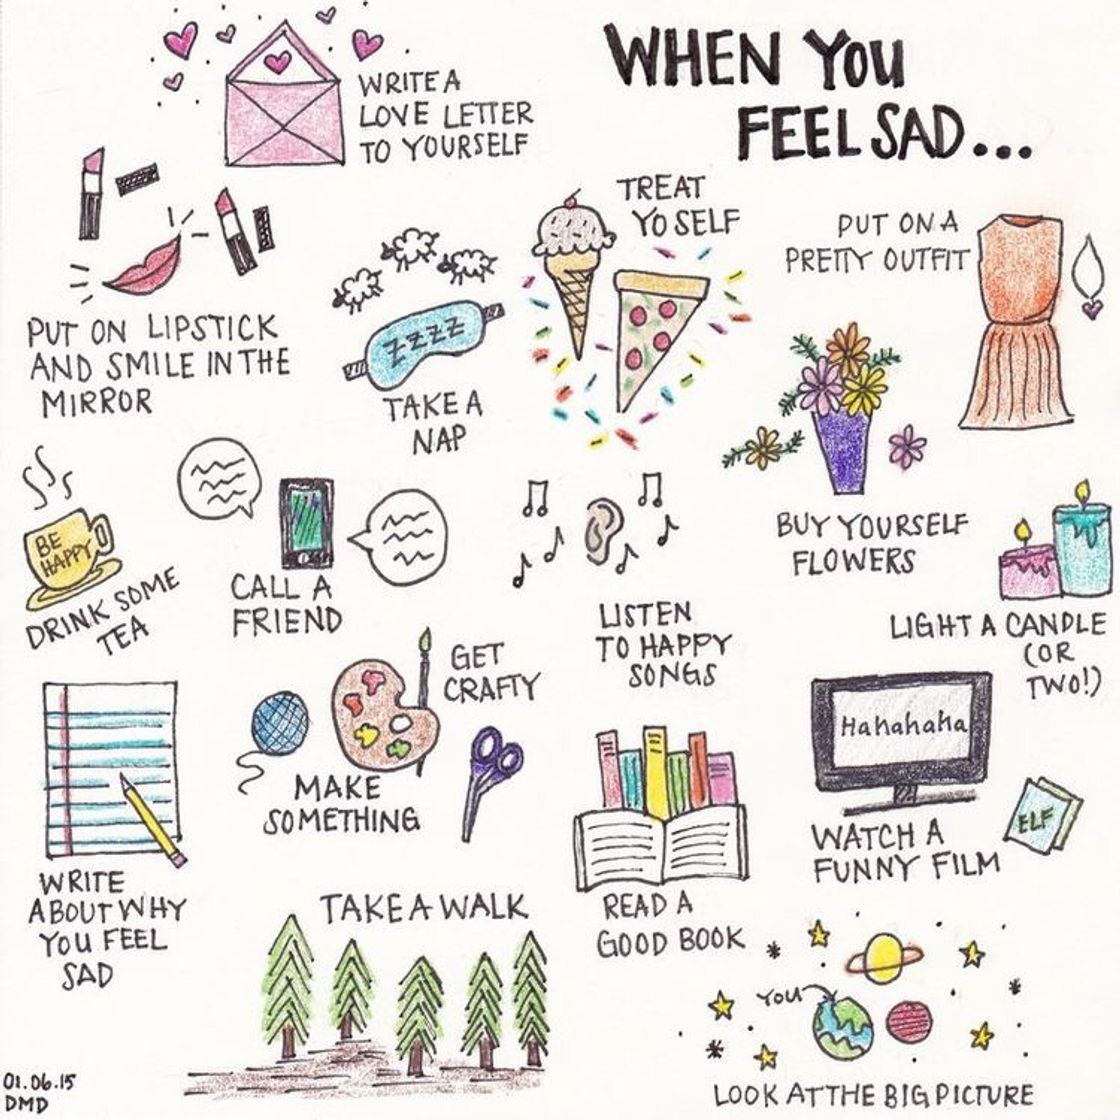 WHEN YOU
FEEL SAD...
WRITE A
LOVE LETTER
TO YOURSELF
PUT ON LIPSTICK
AND SMILE IN THE
MIRROR
ZZZZ
TAKE A
NAP
TREAT
YO SELF
PUT ON A
PRETTY OUTFIT
BE
HAPPY
DRINK SOME
TEA
CALL A
FRIEND
LISTEN
TO HAPPY
SONGS
BUY YOURSELF
FLOWERS
LIGHT A CANDLE
(OR
TWO!)
WRITE
ABOUT WHY
YOU FEEL
SAD
GET
CRAFTY
MAKE
SOMETHING
READ A
GOOD BOOK
Hahahaha
ELF
WATCH A
FUNNY FILM
TAKE A WALK
YOU
LOOK AT THE BIG PICTURE
01.06.15
DMD